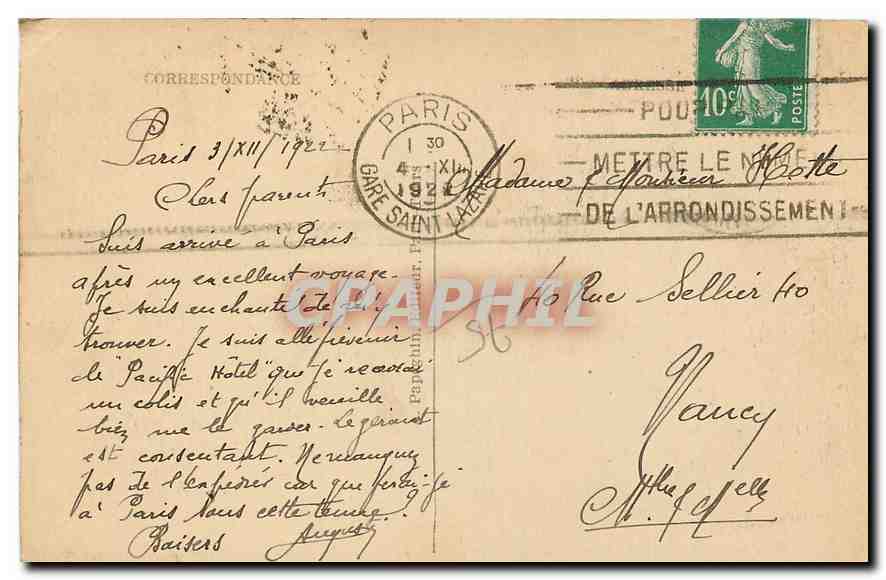 CORRESPONDANCE
Paris 3/XII/1922
Chers parents
Suis arrivé à Paris
après un excellent voyage.
Je suis enchanté de
trouver. Je suis allé prévenir
le "Pacific Hôtel" que je
un colis et qu'il veuille
bien me le garder. Le gérant
est consentant. Ne manquez
pas de l'expédier car que ferai-je
à Paris sous cette tenue?
Baisers Auguste
Papeghin, Editeur, Paris-Tours
PARIS
1 30
4 XII
1922
GARE SAINT LAZARE
10c
POSTE
POU
METTRE LE N
DE L'ARRONDISSEMENT
Madame & Monsieur Hotte
40 Rue Sellier 40
Nancy
Mthe & Melle
56
CPAPHIL